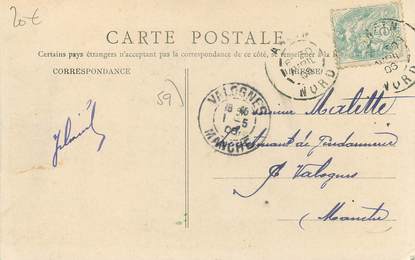 20€
CARTE POSTALE
Certains pays étrangers n'acceptant pas la correspondance de ce côté, se renseigner à la
CORRESPONDANCE
59)
NORD
NORD
VALOGNES
18 45
1 - 5
MANCHE
Monsieur Malitte
Lieutenant de Gendarmerie
à Valognes
Manche